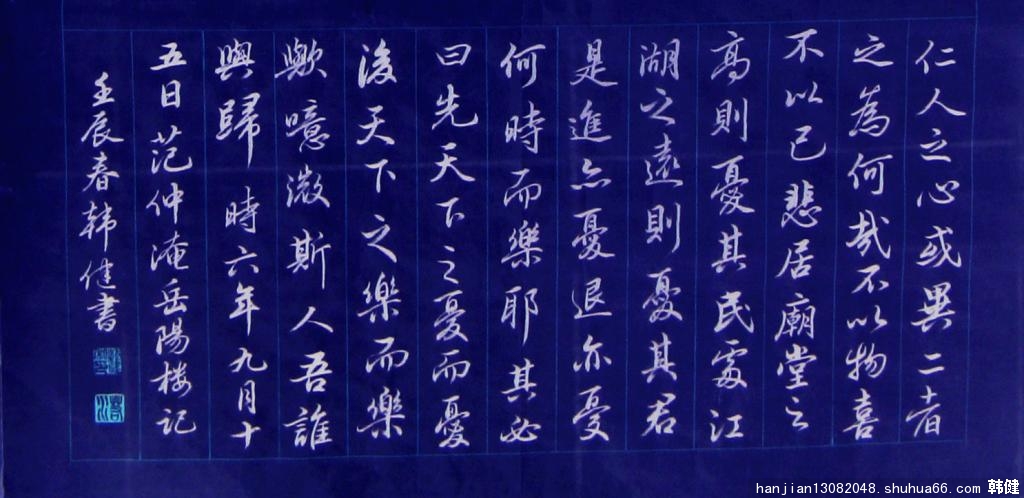 仁人之心或異二者
之為何哉不以物喜
不以己悲居廟堂之
高則憂其民處江
湖之遠則憂其君
是進亦憂退亦憂
何時而樂耶其必
曰先天下之憂而憂
後天下之樂而樂
歟噫微斯人吾誰
與歸 時六年九月十
五日范仲淹岳陽楼记
壬辰春韩健書
hanjian13082048.shuhua66.com 韩健